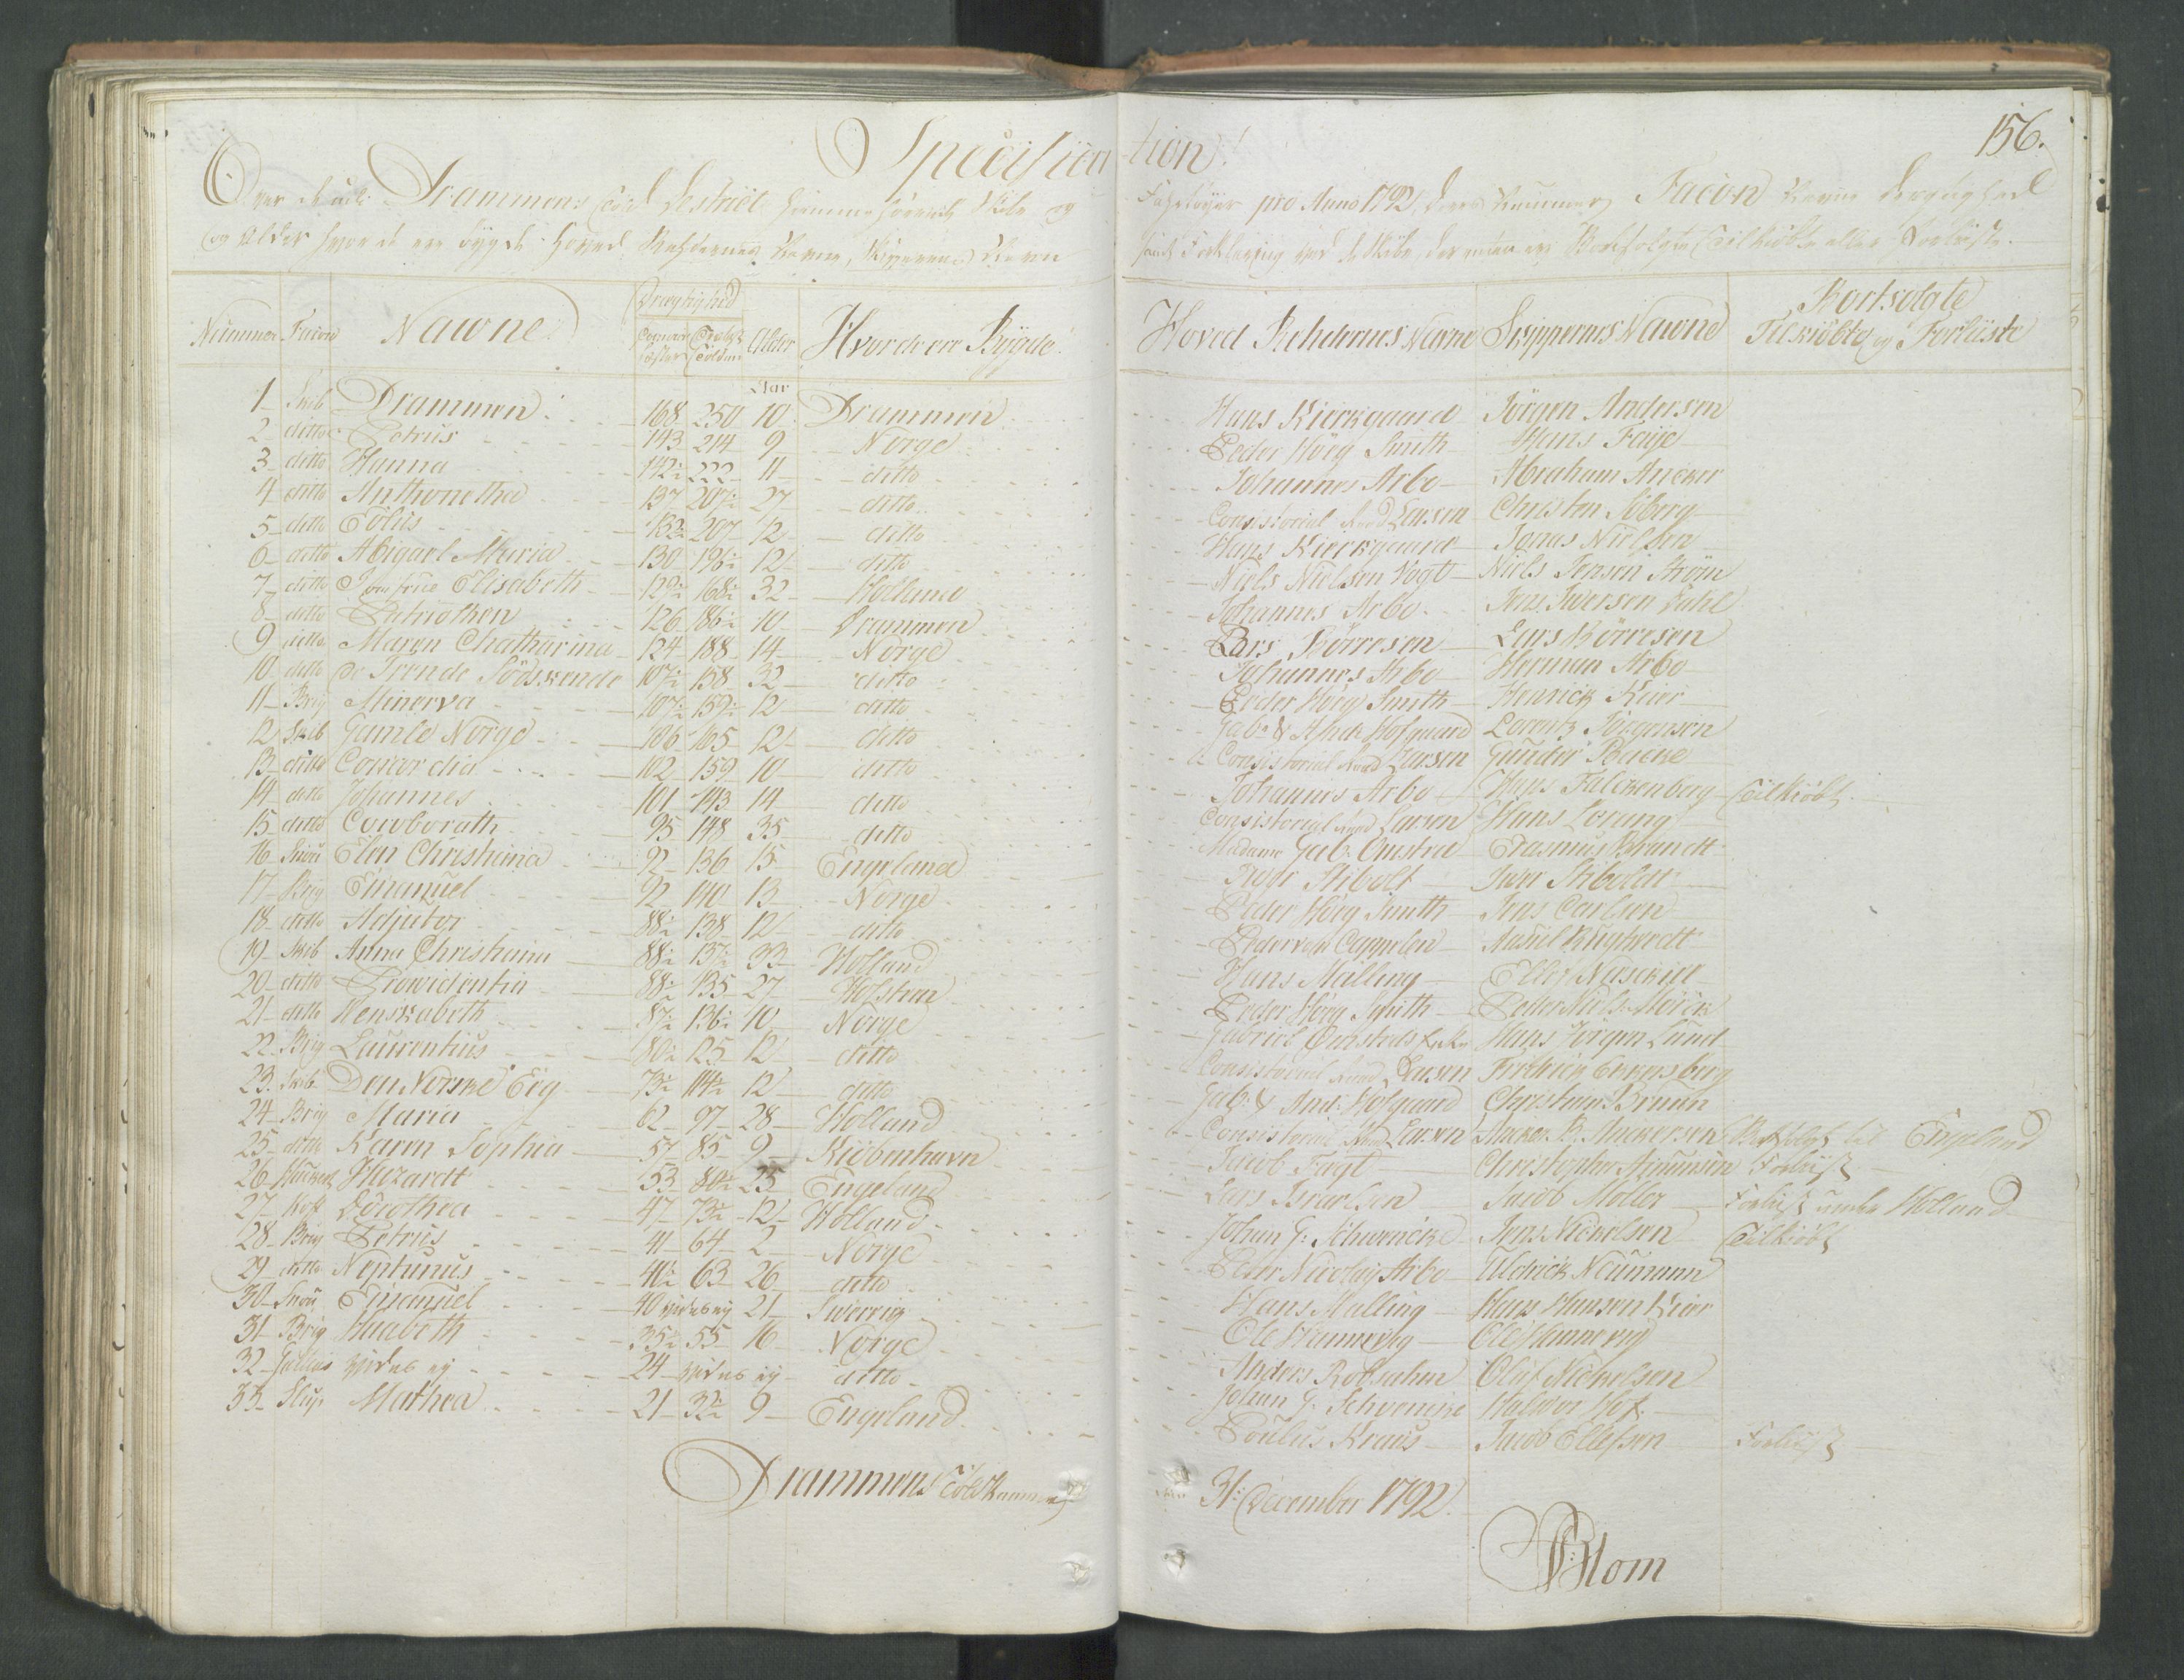 156.
Specification!
Over de udi Drammens Told Destrict hiemmehørende Skibe og Fahrtøyer pro Anno 1792, deres Nummer, Facon Navne Drægtighed
og Alder hvor de ere bygde, Hoved Rehdernes Navne, Skippernes Navne samt Forklaring ved de Skibe, der ere Bortsolgte Tilkiøbte eller Forliiste.
Nummer Facon Nawne Drægtighed Commerce Læster Alder Hvor de ere Bÿgde Hoved Rehdernes Navne Skippernes Nawne Bortsolgte Tilkiøbte og Forliiste
Aar
1 Skib Drammen 168 250 10 Drammen Hans Kierkgaard Jörgen Andersen
2 ditto Petrus 143 214 9 Norge Peder Höeg Smith Hans Faÿe
3 ditto Hanna 142½ 222 11 ditto Johannes Arbo Abraham Ancker
4 ditto Anthonetha 137 207½ 27 ditto Consistorial Raad Larsen Christen Soberg
5 ditto Eölus 132½ 207 12 ditto Hans Kierkgaard Jonas Nielsen
6 ditto Abigael Maria 130 196½ 12 ditto Niels Nielsen Vogt Niels Jensen Ström
7 ditto Jomfrue Elisabeth 129½ 168½ 32 Holland Johannes Arbo Jens Iverson Dahl
8 ditto Patriothen 126 186½ 10 Drammen Lars Börresen Lars Börresen
9 ditto Maren Chatharina 124 188 14 Norge Johannes Arbo Herman Arbo
10 ditto De Trende Södskende 107½ 158 32 ditto Peder Höeg Smith Henrick Kiær
11 Brig Minerva 107½ 159½ 12 ditto Gab: & And: Hofgaard Lorentz Jörgensen
12 Skib Gamle Norge 106 165 12 ditto Consistorial Raad Larsen Gunder Backe
13 ditto Concordia 102 159 10 ditto Johannes Arbo Hans Falckenberg Tilkiöbt
14 ditto Johannes 101 143 14 ditto Consistorial Raad Larsen Hans Lorung
15 ditto Cowborath 95 148 35 ditto Madame Gab: Omsted Erasmus Brandt
16 Snau Elen Christiania 92 136 15 Engeland Iwer Stibolt Iwer Stiboldt
17 Brig Emanuel 92 140 13 Norge Peder Höeg Smith Jens Carlsen
18 ditto Adjutor 88½ 138 12 ditto Peder von Cappelen
19 Skib Anna Christiana 88½ 137½ 33 Holland Hans Malling Ellef
20 ditto Prowidentia 88½ 135 27 Holsteen Peder Höeg Smith Peder Niels: Mörck
21 ditto Wenskabeth 87½ 136½ 10 Norge Gabriel Omsteds Enke Hans Jörgen Lund
22 Brig Laurentius 80½ 125 12 ditto Consistorial Raad Larsen Fridrick
23 Skib Den Norske Eeg 73½ 114½ 12 ditto Gab: & And: Hofgaard Christian Bruun
24 Brig Maria 62 97 28 Holland Consistorial Raad Larsen Ancker B. Anckersen Bortsolgt til Engeland
25 ditto Karen Sophia 57 85 9 Kiöbenhavn Jacob Fagt Christopher Forliist
26 Huckert 53 80½ 25 Engeland Lars Jacob Moller Forliist under Holland
27 Koff Dorothea 47 73½ 12 Holland Johan G: Schwencke Jens Nickelsen Tilkiöbt
28 Brig Petrus 41 64 2 Norge Peter Nicolaÿ Arbo Uldrick Neumann
29 ditto Neptunus 40½ 63 26 ditto Hans Malling Hans Hansen Kiær
30 Snau Emanuel 40 vides ej 21 Swerrig Ole Hannevig Ole Hannevig
31 Brig Haabeth 35½ 55 16 Norge Anders Robsahm Oluf Nickelsen
32 Gallias vides ej 24 vides ej ditto Johan G. Schwencke Halvor Hof
33 Slup Mathea 21 32½ 9 Engeland Poulus Kraus Jacob Ellefsen Forliist
Drammens Told Kammer 31: December 1792.
Blom